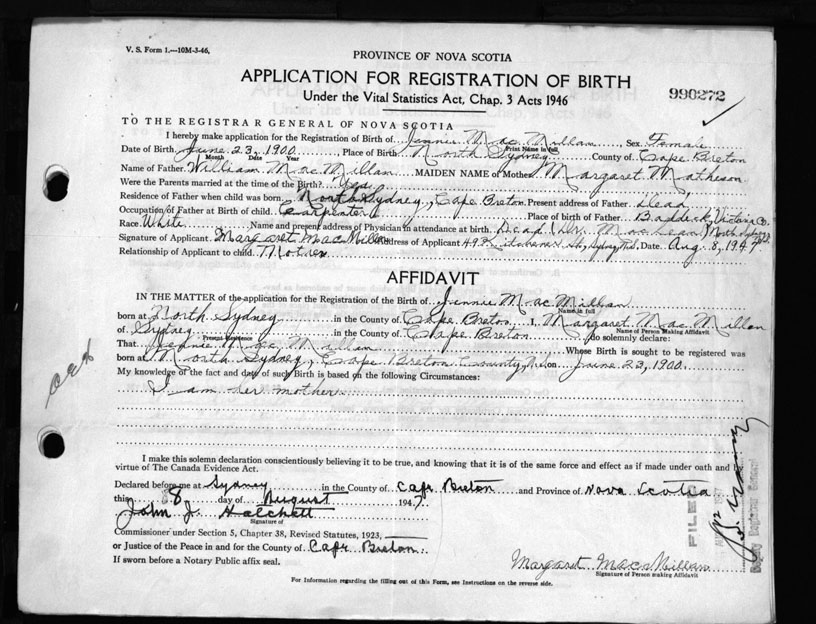 V. S. Form 1.—10M-3-46.
PROVINCE OF NOVA SCOTIA
APPLICATION FOR REGISTRATION OF BIRTH
990272
Under the Vital Statistics Act, Chap. 3 Acts 1946
TO THE REGISTRAR GENERAL OF NOVA SCOTIA
I hereby make application for the Registration of Birth of Jennie MacMillan Sex Female
Print Name in full
Date of Birth June 23, 1900 Place of Birth North Sydney County of Cape Breton
Month Date Year
Name of Father William MacMillan MAIDEN NAME of Mother Margaret Matheson
Were the Parents married at the time of Birth? Yes
Residence of Father when child was born North Sydney, Cape Breton Present address of Father Dead
Occupation of Father at Birth of child Carpenter Place of birth of Father Baddeck, Victoria Co.
Race White Name and present address of Physician in attendance at birth Dead (Dr. MacLean) North Sydney
Signature of Applicant Margaret MacMillan Address of Applicant St, Sydney Date Aug. 8, 1947
Relationship of Applicant to child Mother
AFFIDAVIT
IN THE MATTER of the application for the Registration of the Birth of Jennie MacMillan
Name in full
born at North Sydney in the County of Cape Breton I, Margaret MacMillan
Name of Person Making Affidavit
of Sydney in the County of Cape Breton do solemnly declare:
Present Residence
That Jennie MacMillan Whose Birth is sought to be registered was
born at North Sydney, Cape Breton County, on June 23, 1900
My knowledge of the fact and day of such Birth is based on the following Circumstances:
I am her mother
I make this solemn declaration conscientiously believing it to be true, and knowing that it is of the same force and effect as if made under oath and by
virtue of The Canada Evidence Act.
Declared before me at Sydney in the County of Cape Breton and Province of Nova Scotia
this 8 day of August 1947
John J. Halchett
Signature of
Commissioner under Section 5, Chapter 38, Revised Statutes, 1923,
or Justice of the Peace in and for the County of Cape Breton
If sworn before a Notary Public affix seal.
Margaret MacMillan
Signature of Person Making Affidavit
For Information regarding the filling out of this Form, see Instructions on the reverse side.
FILED
Deputy Registrar General